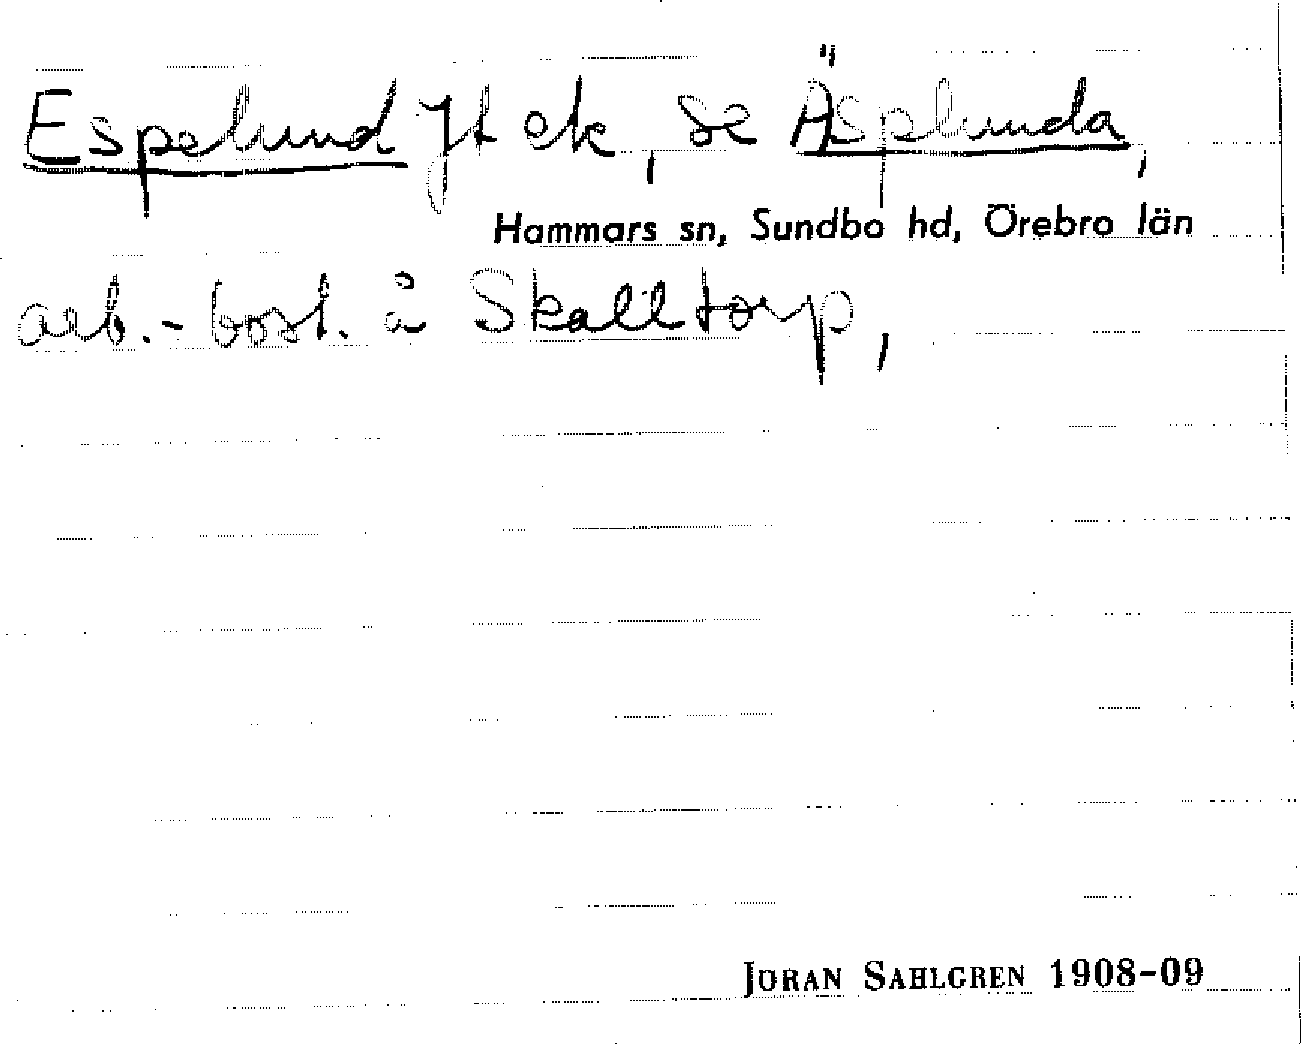 Espelund Jt ek, se Äsplunda,
Hammars sn, Sundbo hd, Örebro län
arb.-bost. å Skalltorp,
JÖRAN SAHLGREN 1908-09